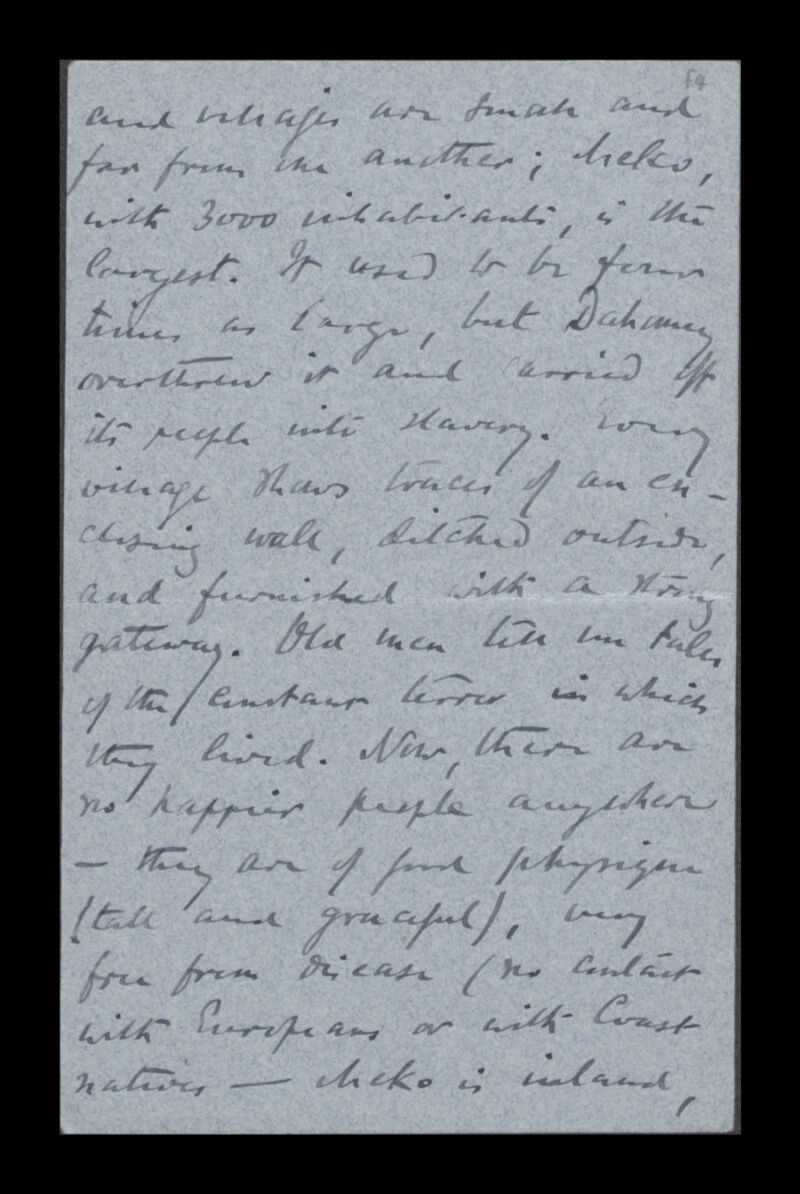 54
and villages are small and
far from one another; Meko,
with 3000 inhabitants, is the
largest. It used to be four
times as large, but Dahomey
overthrew it and carried off
its people into slavery. Every
village shows traces of an en-
closing wall, ditched outside,
and furnished with a strong
gateway. Old men tell me tales
of the constant terror in which
they lived. Now, there are
no happier people anywhere
— they are of good physique
(tall and graceful), very
free from disease (no contact
with Europeans or with Coast
natives — Meko is inland,